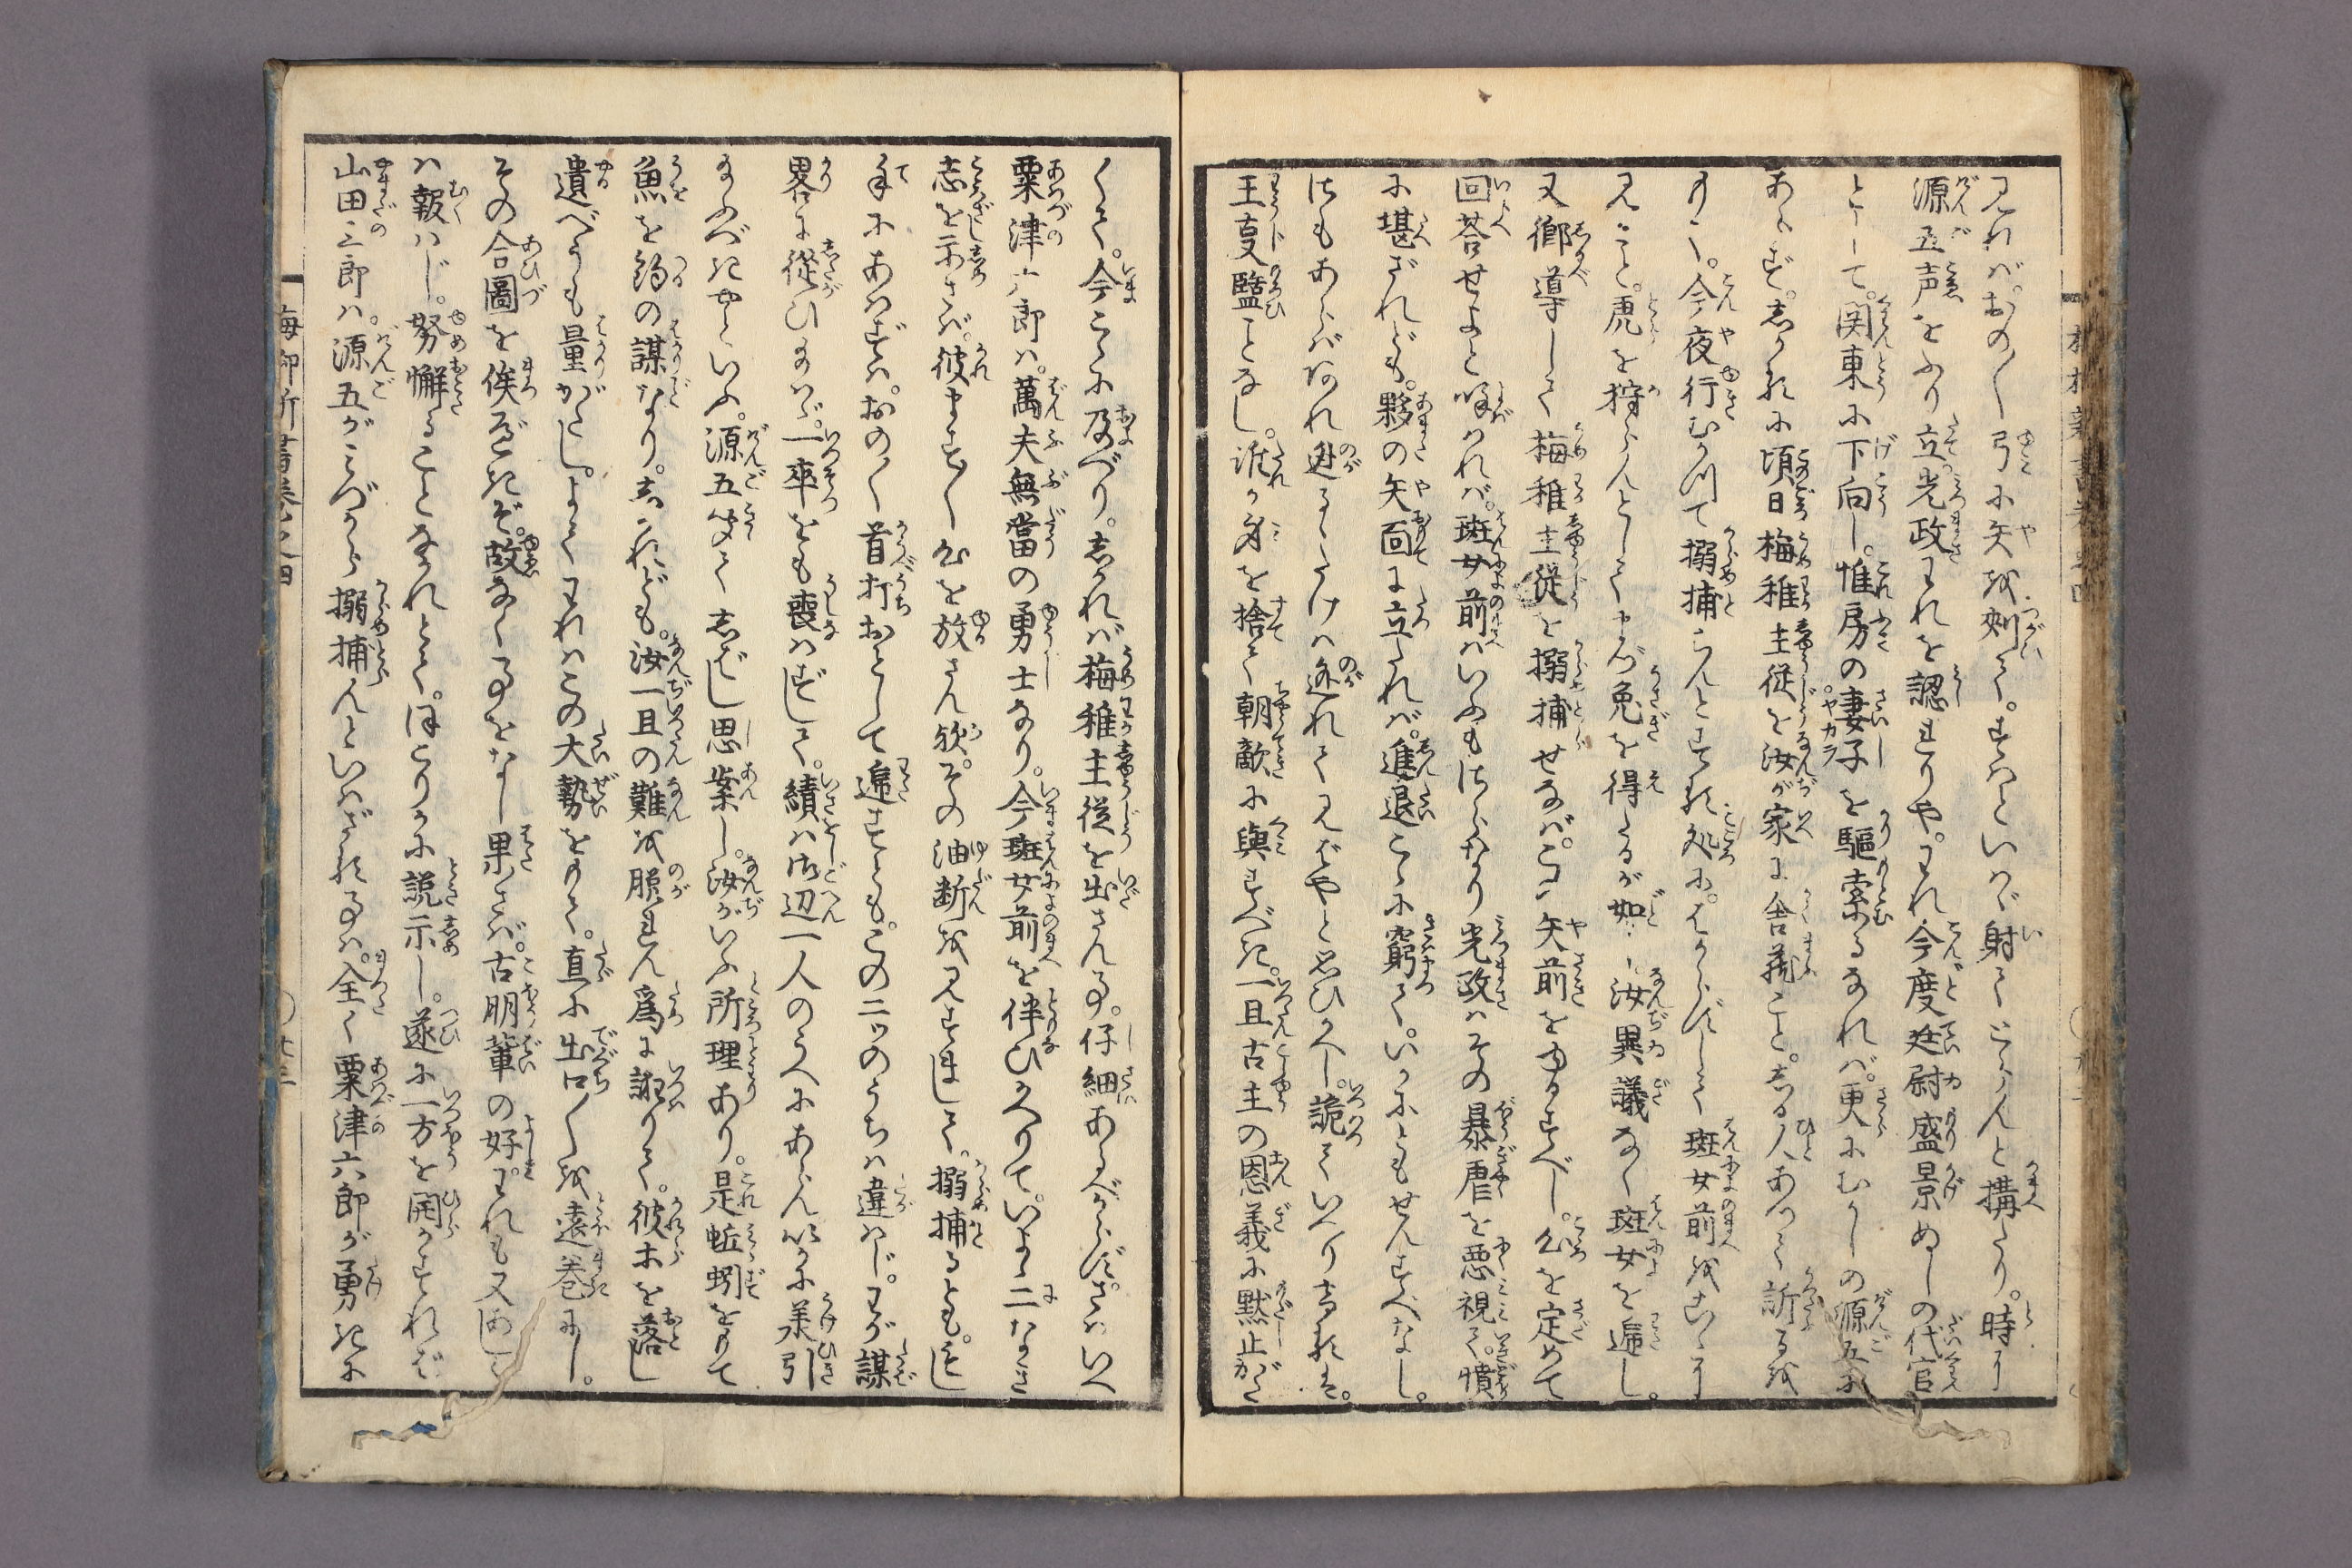 見れば。おの〳〵弓に矢を刎て。すはといはゞ射てとらんと搆たり。時に
源五声をふり立。光政われを認れりや。われ今度廷尉盛景ぬしの代官
として。関東に下向し。惟房の妻子を驅索るなれば。更にむかしの源五に
あらず。しかるに頃日梅稚主従を汝が家に舎蔵こと。しる人あつて訴るを
もて。今夜行むかつて搦捕らんとする処に。はからずして斑女前をこゝに
見ること。虎を狩らんとしてまづ兎を得たるが如し。汝異議なく斑女を逓し。
又郷導して梅稚主従を搦捕せなば。この矢前をゆるすべし。心を定めて
回荅せよと呼はれば。斑女前はいふもさらなり光政はその暴虐を悪視て。憤
に堪ざれども。夥の矢面に立たれば。進退こゝに窮て。いかにともせんすべなし。
さもあらばあれ迯るゝたけは迯れて見ばやと思ひかへし。詭ていへり
王吏監ことなし。誰か身を捨て朝敵に與すべき。一旦古主の恩義に黙止がた
くて。今こゝに及べり。しかれば梅稚主従を出さん事。仔細あるべからず。さはいへ
粟津六郎は。萬夫無當の勇士なり。今斑女前を伴ひかへりて。いよ〳〵二なき
志を示さば。彼ます〳〵心を放さん歟。その油断を見すまして。搦捕るとも。もし
手にあはずは。おの〳〵首打おとして逓すとも。この二ッのうちは違はじ。わが謀
畧に従ひ給はゞ。一卒をも喪はずして。績は御辺一人のうへにあらん。いかに羕引
給ふべきやといふ。源五聞てしばし思案し。汝がいふ所理あり。是蚯蚓をもて
魚を釣の謀なり。しかれども。汝一旦の難を脱れん為に詐りて。彼木を落し
遺べうも量がたし。よてわれはこの大勢をもて。直に出口〳〵を遠巻にし。
その合圖を俟べきぞ。故なく事をなし果さば。古朋輩の好。われも又
は報はじ。努懈ることなかれとて。ほこりかに説示し。遂に一方を開かすれば
山田三郎は。源五がみづから搦捕んといはざる事は。全く粟津六郎が勇きに
梅柳新書巻之四